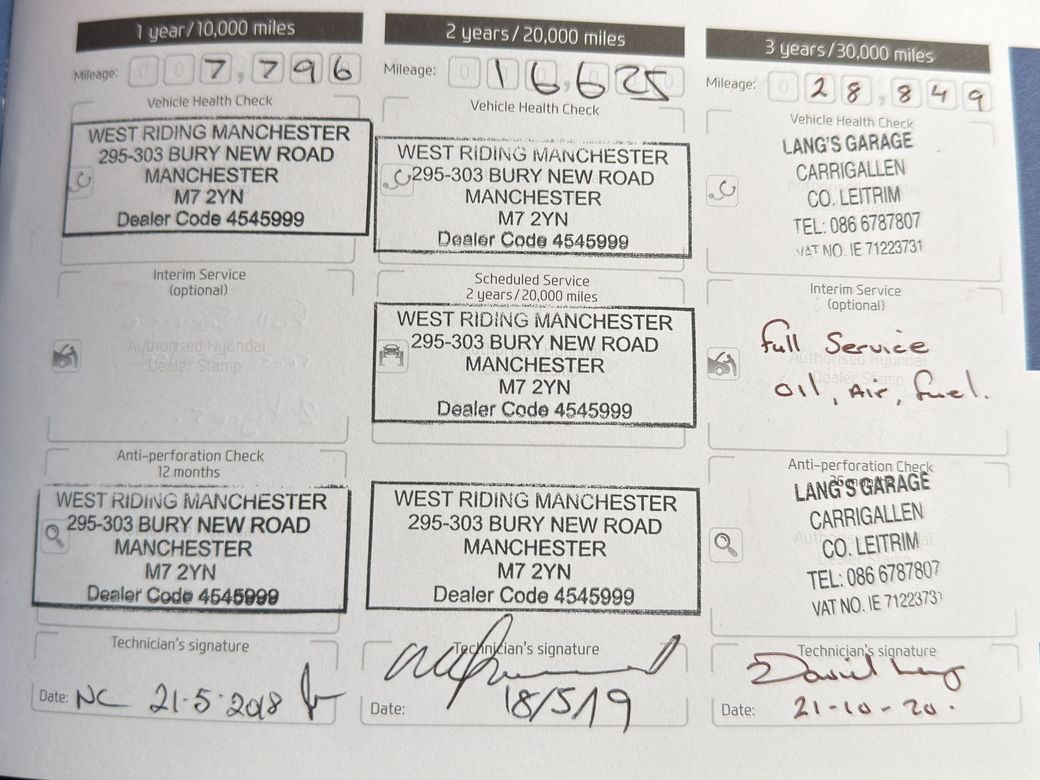 1 year/10,000 miles
Mileage: 0 0 7,796
Vehicle Health Check
WEST RIDING MANCHESTER
295-303 BURY NEW ROAD
MANCHESTER
M7 2YN
Dealer Code 4545999
Interim Service
(optional)
Authorised Hyundai
Dealer Stamp
Anti-perforation Check
12 months
WEST RIDING MANCHESTER
295-303 BURY NEW ROAD
MANCHESTER
M7 2YN
Dealer Code 4545999
Technician's signature
Date: NC 21-5-2018
2 years/20,000 miles
Mileage: 16,625
Vehicle Health Check
WEST RIDING MANCHESTER
295-303 BURY NEW ROAD
MANCHESTER
M7 2YN
Dealer Code 4545999
Scheduled Service
2 years/20,000 miles
WEST RIDING MANCHESTER
295-303 BURY NEW ROAD
MANCHESTER
M7 2YN
Dealer Code 4545999
WEST RIDING MANCHESTER
295-303 BURY NEW ROAD
MANCHESTER
M7 2YN
Dealer Code 4545999
Technician's signature
Date: 18/5/19
3 years/30,000 miles
Mileage: 0 28,849
Vehicle Health Check
LANG'S GARAGE
CARRIGALLEN
CO. LEITRIM
TEL: 086 6787807
VAT NO. IE 71223731
Interim Service
(optional)
Full Service
Oil, Air, Fuel.
Anti-perforation Check
LANG'S GARAGE
CARRIGALLEN
CO. LEITRIM
TEL: 086 6787807
VAT NO. IE 71223731
Technician's signature
David Lang
Date: 21-10-20.